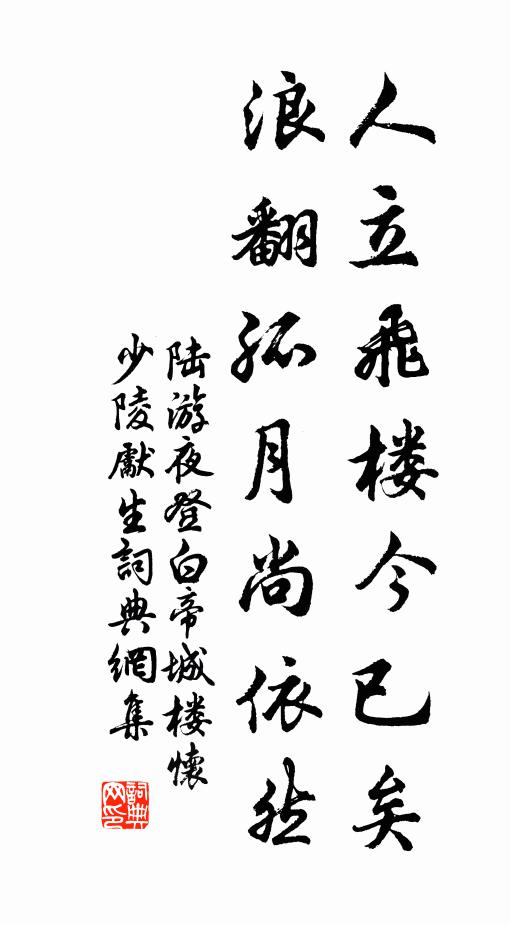 人立飛楼今已矣
浪翻孤月尚依然
陆游夜登白帝城楼懷
少陵獻生詞典網集
詞典网印